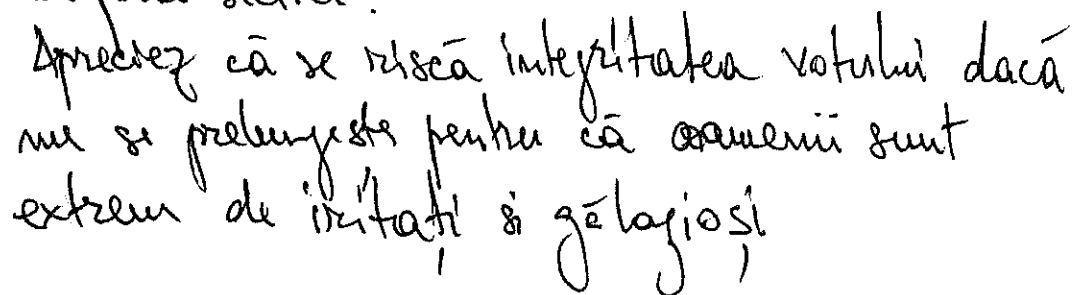 Apreciez că se riscă integritatea votului dacă
nu se prelungește pentru că oamenii sunt
extrem de iritați si gălagioși